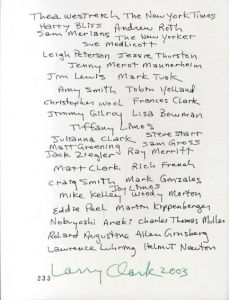 Thea Westreich The New York Times
Harry Bliss Andrew Roth
Sam Merians The New Yorker
Sue Medlicott
Leigh Peterson Jessie Thurston
Jenny Merot Mannerheim
Jim Lewis Mark Tusk
Amy Smith Tobin Yelland
Christopher Wool Frances Clark
Jimmy Gilroy Lisa Bowman
Tiffany Limos
Julianna Clark Steve Starr
Matt Groening Sam Gross
Jack Ziegler Ray Merritt
Matt Clark Rich French
Craig Smith Mark Gonzales
Joy Limos
Mike Kelley Woody Morton
Eddie Peel Martin Kippenberger
Nobuyoshi Araki Charles Thomas Mullen
Roland Augustine Allen Ginsberg
Lawrence Luhring Helmut Newton
233 Larry Clark 2003